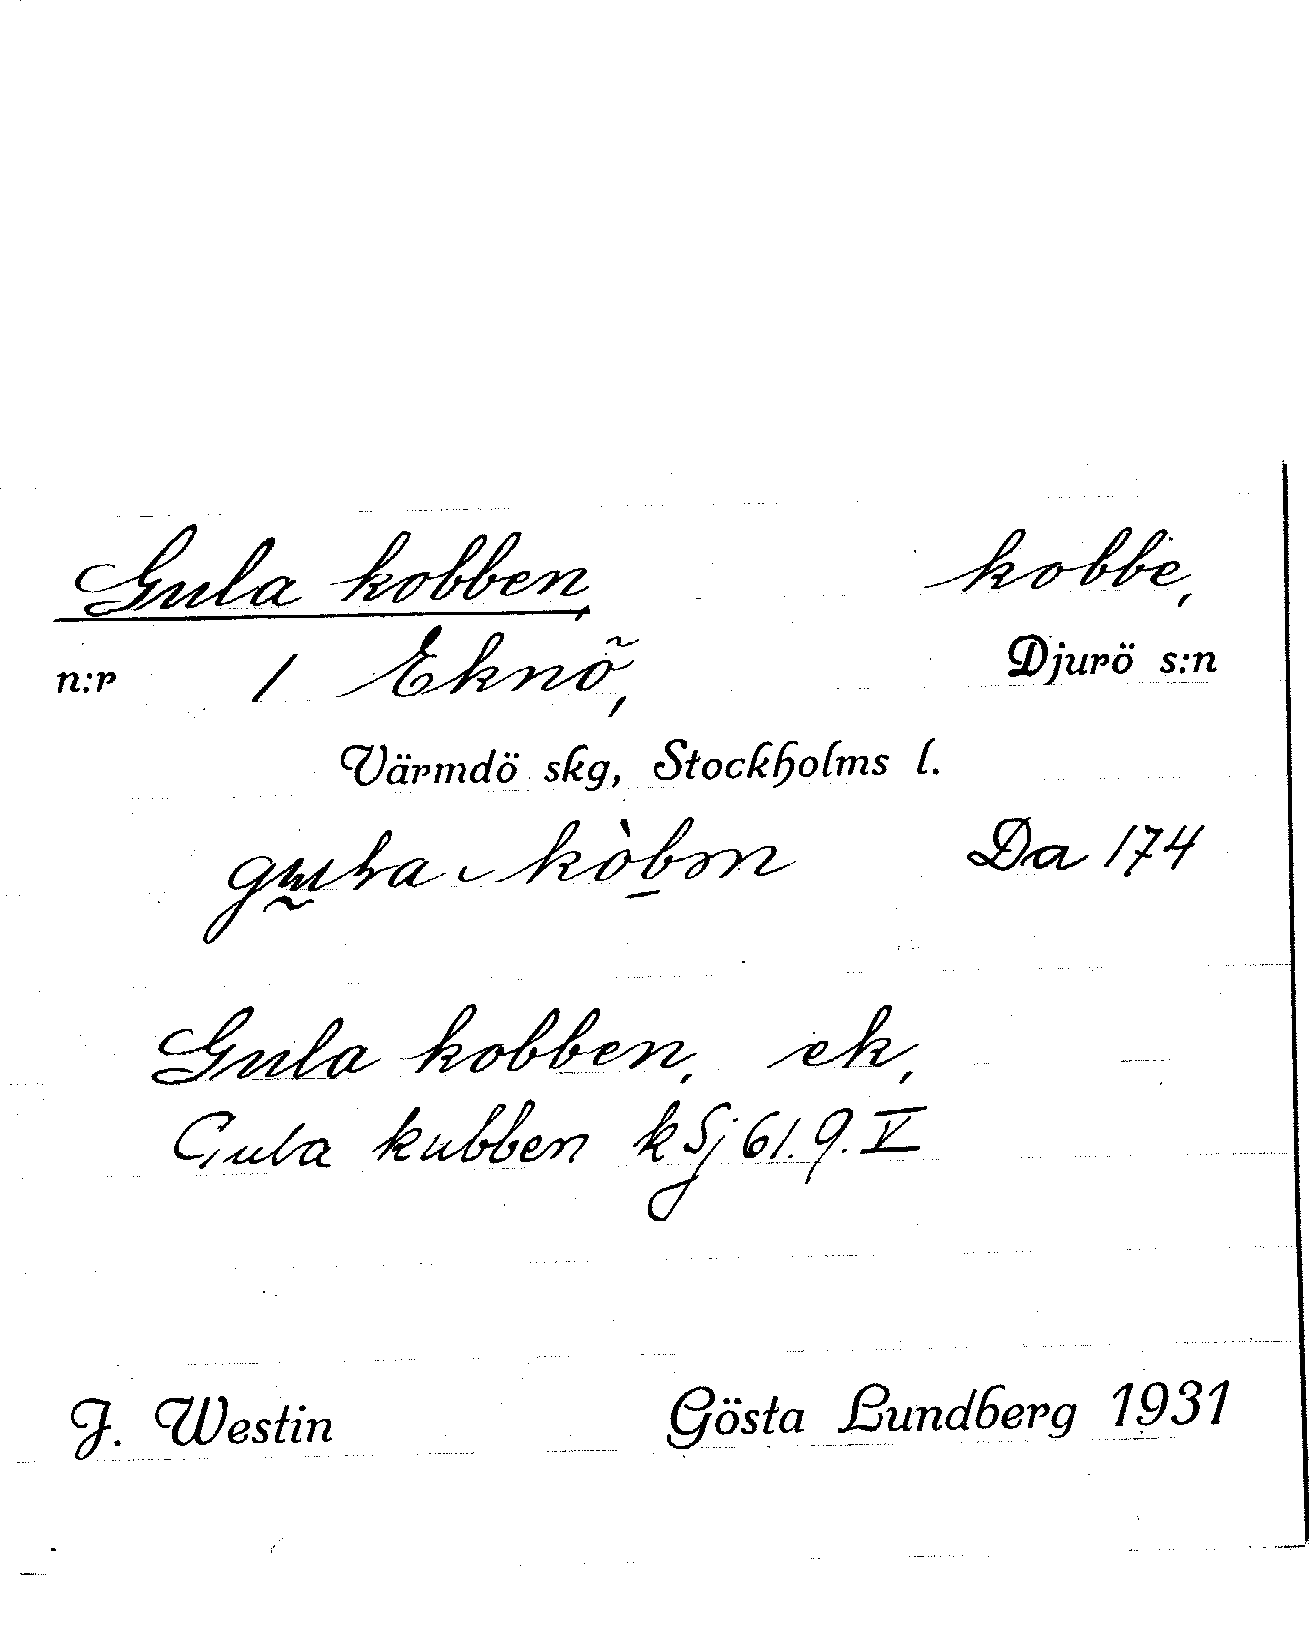 Gula kobben, kobbe,
n:r 1 Eknö, Djurö s:n
Värmdö skg, Stockholms l.
Da 174
Gula kobben, ek,
Gula kubben k Sj 61.9.V
J. Westin Gösta Lundberg 1931